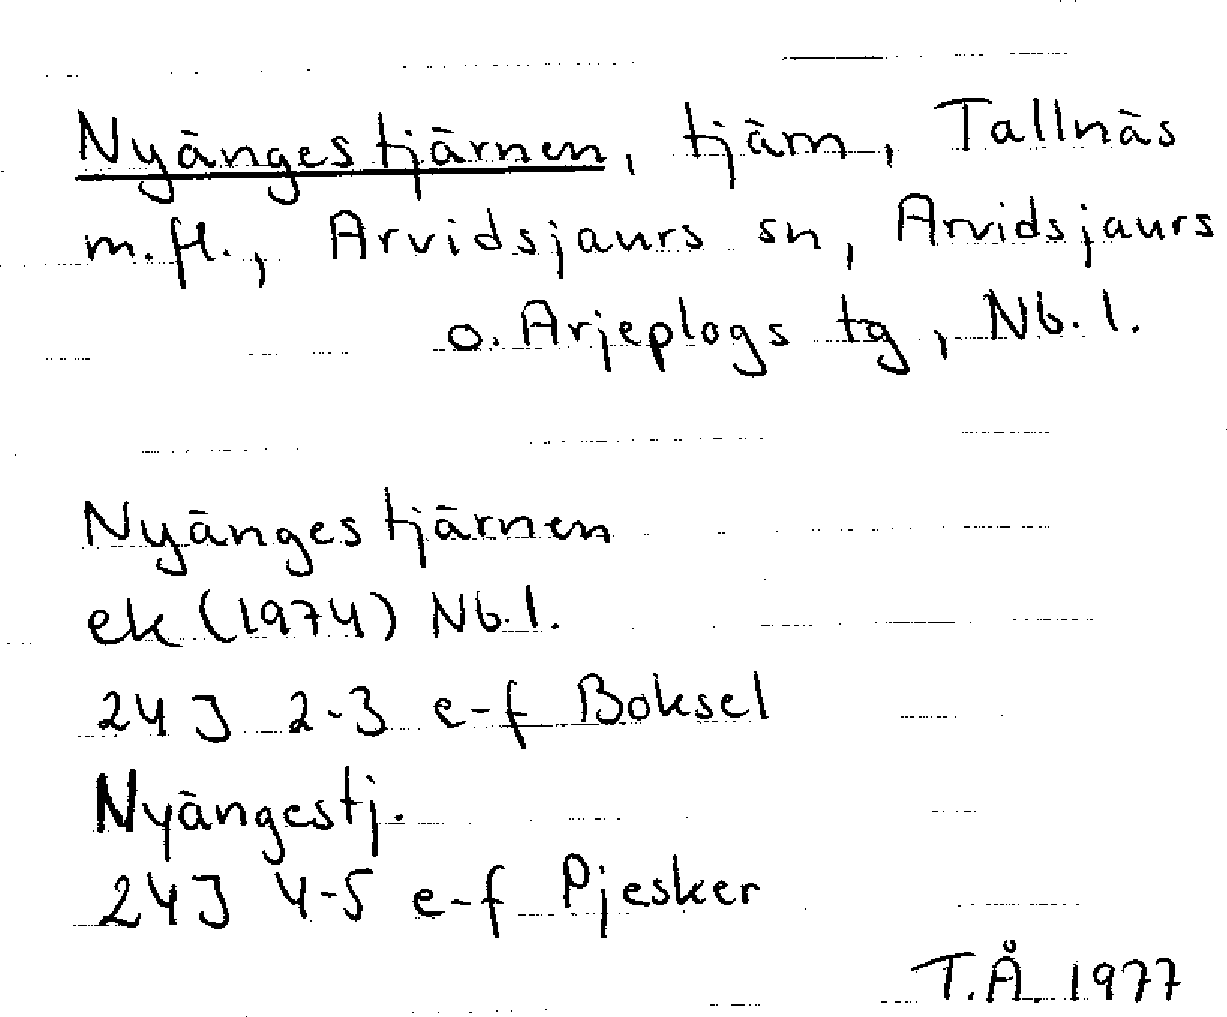 Nyängestjärnen, tjärn, Tallnäs
m.fl., Arvidsjaurs sn, Arvidsjaurs
o. Arjeplogs tg, Nb. l.
Nyängestjärnen
ek (1974) Nb. l.
24 J 2-3 e-f Boksel
Nyängestj.
24 J 4-5 e-f Pjesker
T.Å. 1977